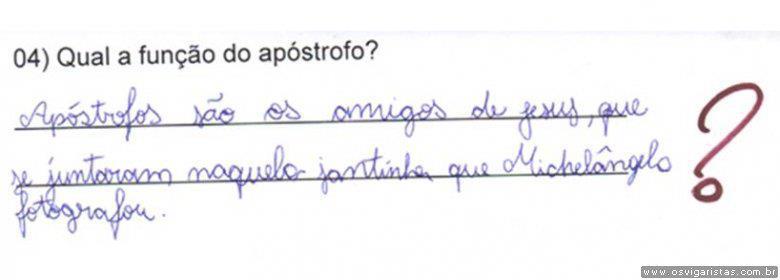 04) Qual a função do apóstrofo?
Apóstrofos são os amigos de jesus, que
se juntaram naquela jantinha que Michelângelo
fotografou.
?
www.osvigaristas.com.br